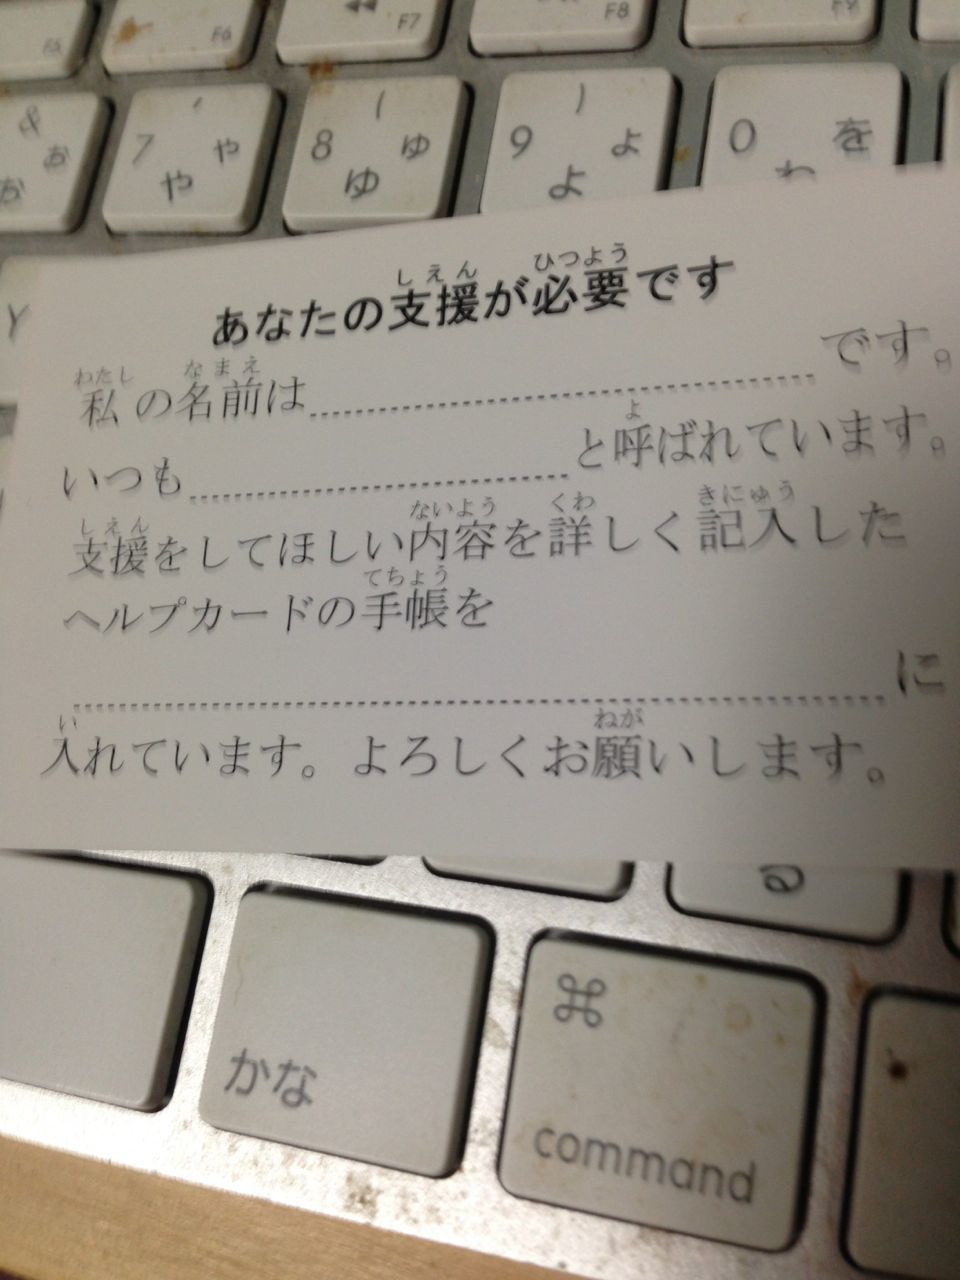 F5 F6 F7 F8 F9
& お か
7 ' や や
8 ( ゆ ゆ
9 ) よ よ
0 を わ
Y
しえん ひつよう
あなたの支援が必要です
わたし なまえ
私の名前は です。
よ
いつも と呼ばれています。
しえん ないよう くわ きにゅう
支援をしてほしい内容を詳しく記入した
てちょう
ヘルプカードの手帳を
に
い ねが
入れています。よろしくお願いします。
かな
⌘
command